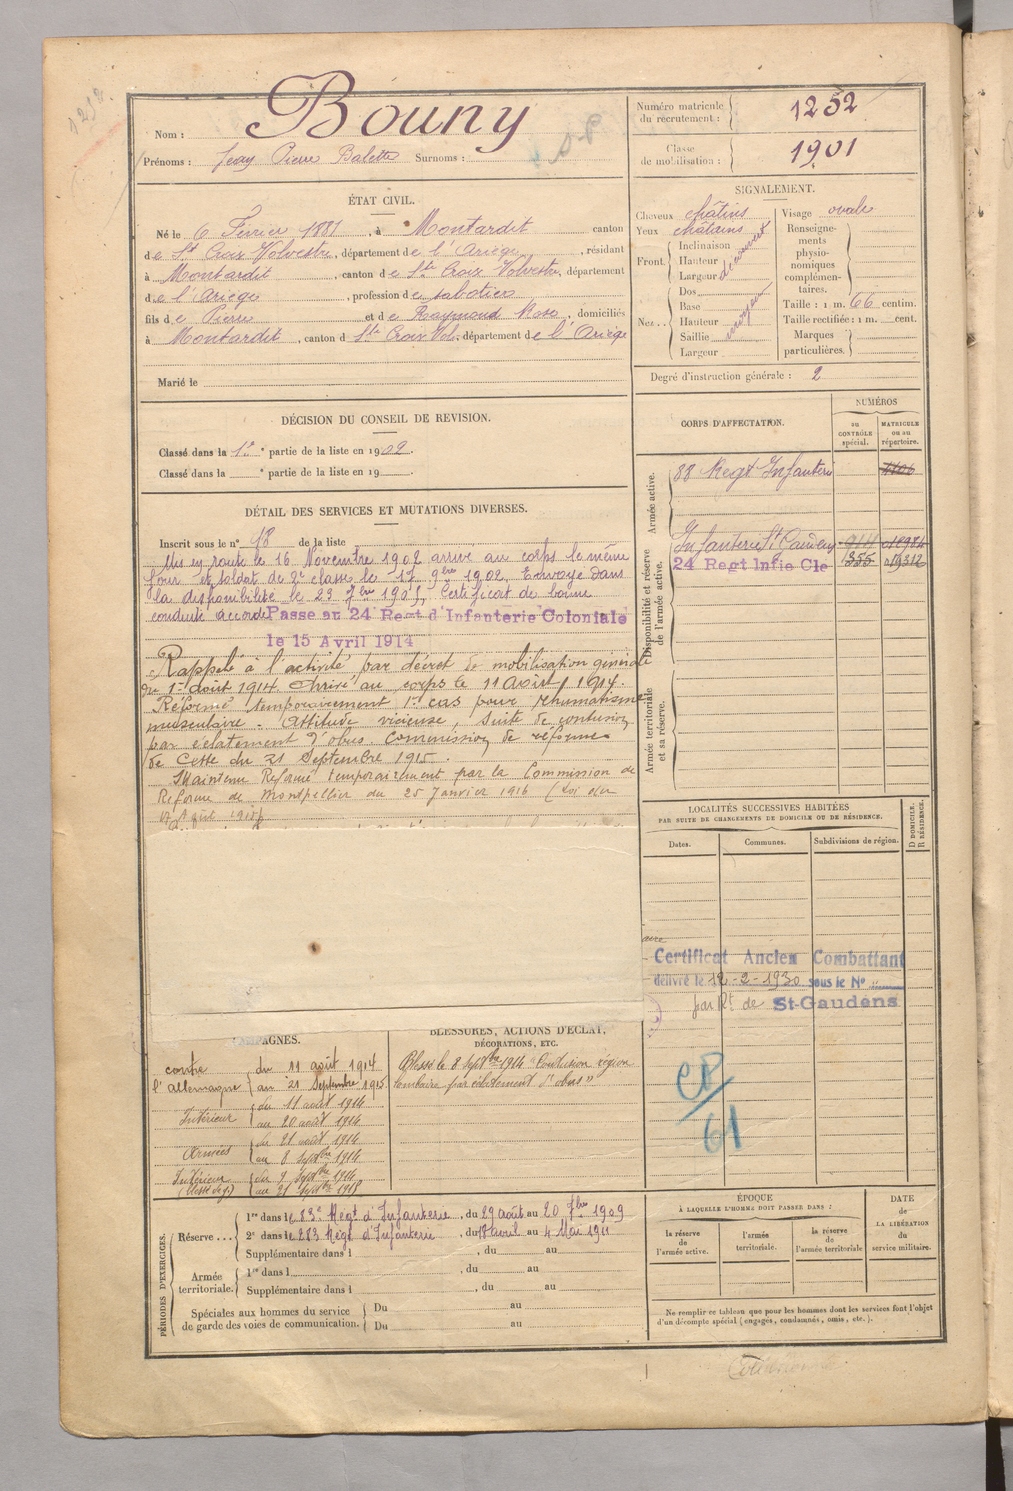 Bouny
Nom :
Prénoms : Jean Pierre Balette Surnoms :
Numéro matricule du recrutement : 1252
Classe de mobilisation : 1901
ÉTAT CIVIL.
Né le 6 Février 1881, à Montardit canton
de St Croix Volvestre, département de l'Ariège, résidant
à Montardit, canton de Ste Croix Volvestre, département
de l'Ariège, profession de sabotier
fils de Pierre et de Raymond Rose, domiciliés
à Montardit, canton d Ste Croix Vol., département de l'Ariège
Marié le
SIGNALEMENT.
Cheveux châtins
Yeux châtains
Front. Inclinaison
Hauteur
Largeur
découvert
Nez . . Dos
Base
Hauteur
Saillie
Largeur
moyen
Visage ovale
Renseignements physionomiques complémentaires.
Taille : 1 m. 66 centim.
Taille rectifiée : 1 m. cent.
Marques particulières.
Degré d'instruction générale : 2
DÉCISION DU CONSEIL DE REVISION.
Classé dans la 1re partie de la liste en 1902
Classé dans la partie de la liste en 19
DÉTAIL DES SERVICES ET MUTATIONS DIVERSES.
Inscrit sous le n° 18 de la liste
Mis en route le 16 Novembre 1902 arrivé au corps le même
jour et soldat de 2e classe le 17 9bre 1902. Envoyé dans
la disponibilité le 23 7bre 1905, Certificat de bonne
conduite accordé Passe au 24 Regt d'Infanterie Coloniale
le 15 Avril 1914
Rappelé à l'activité par décret de mobilisation générale
du 1er août 1914. Arrivé au corps le 11 Août 1914.
Réformé temporairement 1er cas pour rhumatisme
musculaire - Attitude vicieuse, suite de contusion
par éclatement d'obus. Commission de réforme
de Cette du 21 Septembre 1915.
Maintenu Réformé temporairement par la Commission de
Réforme de Montpellier du 25 Janvier 1916 (Loi du
17 Août 1915)
CORPS D'AFFECTATION.
NUMÉROS
AU CONTRÔLE spécial.
MATRICULE ou au répertoire.
Armée active.
88 Regt Infanterie
Disponibilité et réserve de l'armée active.
Infanterie St Gaudens
24 Regt Infie Cle 355
Armée territoriale et sa réserve.
LOCALITÉS SUCCESSIVES HABITÉES
PAR SUITE DE CHANGEMENTS DE DOMICILE OU DE RÉSIDENCE.
Dates.
Communes.
Subdivisions de région.
D DOMICILE.
R RÉSIDENCE.
Certificat Ancien Combattant
délivré le 12-2-1930 sous le N°
par Rt de St-Gaudens
CP/61
CAMPAGNES.
contre l'allemagne du 11 août 1914
au 21 Septembre 1915
Intérieur du 11 août 1914
au 20 août 1914
Armées du 21 août 1914
au 8 Septbre 1914
Intérieur du 9 Septbre 1914
au 21 Septbre 1915
BLESSURES, ACTIONS D'ÉCLAT,
DÉCORATIONS, ETC.
Blessé le 8 Septbre 1914 "Contusion région
lombaire par éclatement d'obus"
PÉRIODES D'EXERCICES.
Réserve . . . 1re dans le 83e Regt d'Infanterie, du 29 août au 20 7bre 1909
2e dans le 283 Régt d'Infanterie, du 18 avril au 4 Mai 1911
Supplémentaire dans l , du au
Armée territoriale. 1re dans l , du au
Supplémentaire dans l , du au
Spéciales aux hommes du service de garde des voies de communication. Du au
Du au
ÉPOQUE
À LAQUELLE L'HOMME DOIT PASSER DANS :
la réserve de l'armée active.
l'armée territoriale.
la réserve de l'armée territoriale
DATE
de
LA LIBÉRATION
du
service militaire.
Ne remplir ce tableau que pour les hommes dont les services font l'objet
d'un décompte spécial (engagés, condamnés, omis, etc.).